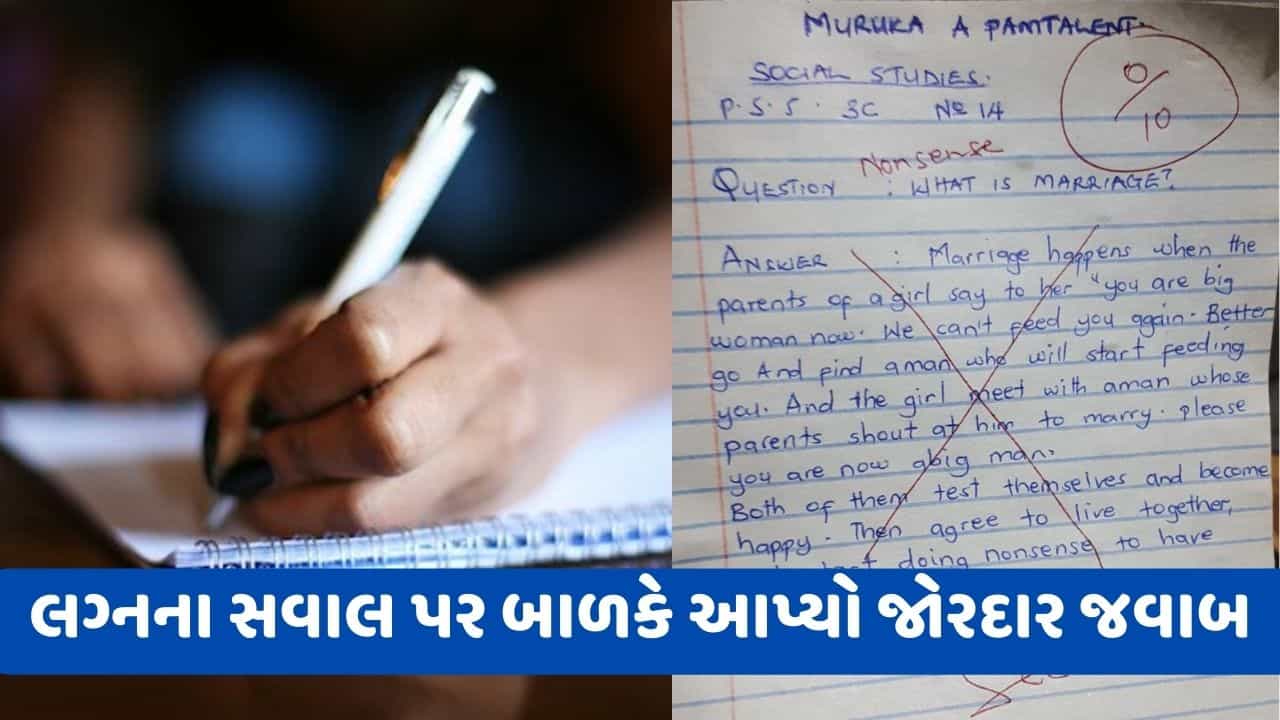 MURUKA A PAMTALENT.
SOCIAL STUDIES.
P.S.S. 3C No 14
0/10
Nonsense
QUESTION : WHAT IS MARRIAGE?
ANSWER : Marriage happens when the
parents of a girl say to her "you are big
woman now. We can't feed you again. Better
go And find aman who will start feeding
you. And the girl meet with aman whose
parents shout at him to marry. please
you are now abig man.
Both of them test themselves and become
happy. Then agree to live together,
doing nonsense to have
લગ્નના સવાલ પર બાળકે આપ્યો જોરદાર જવાબ